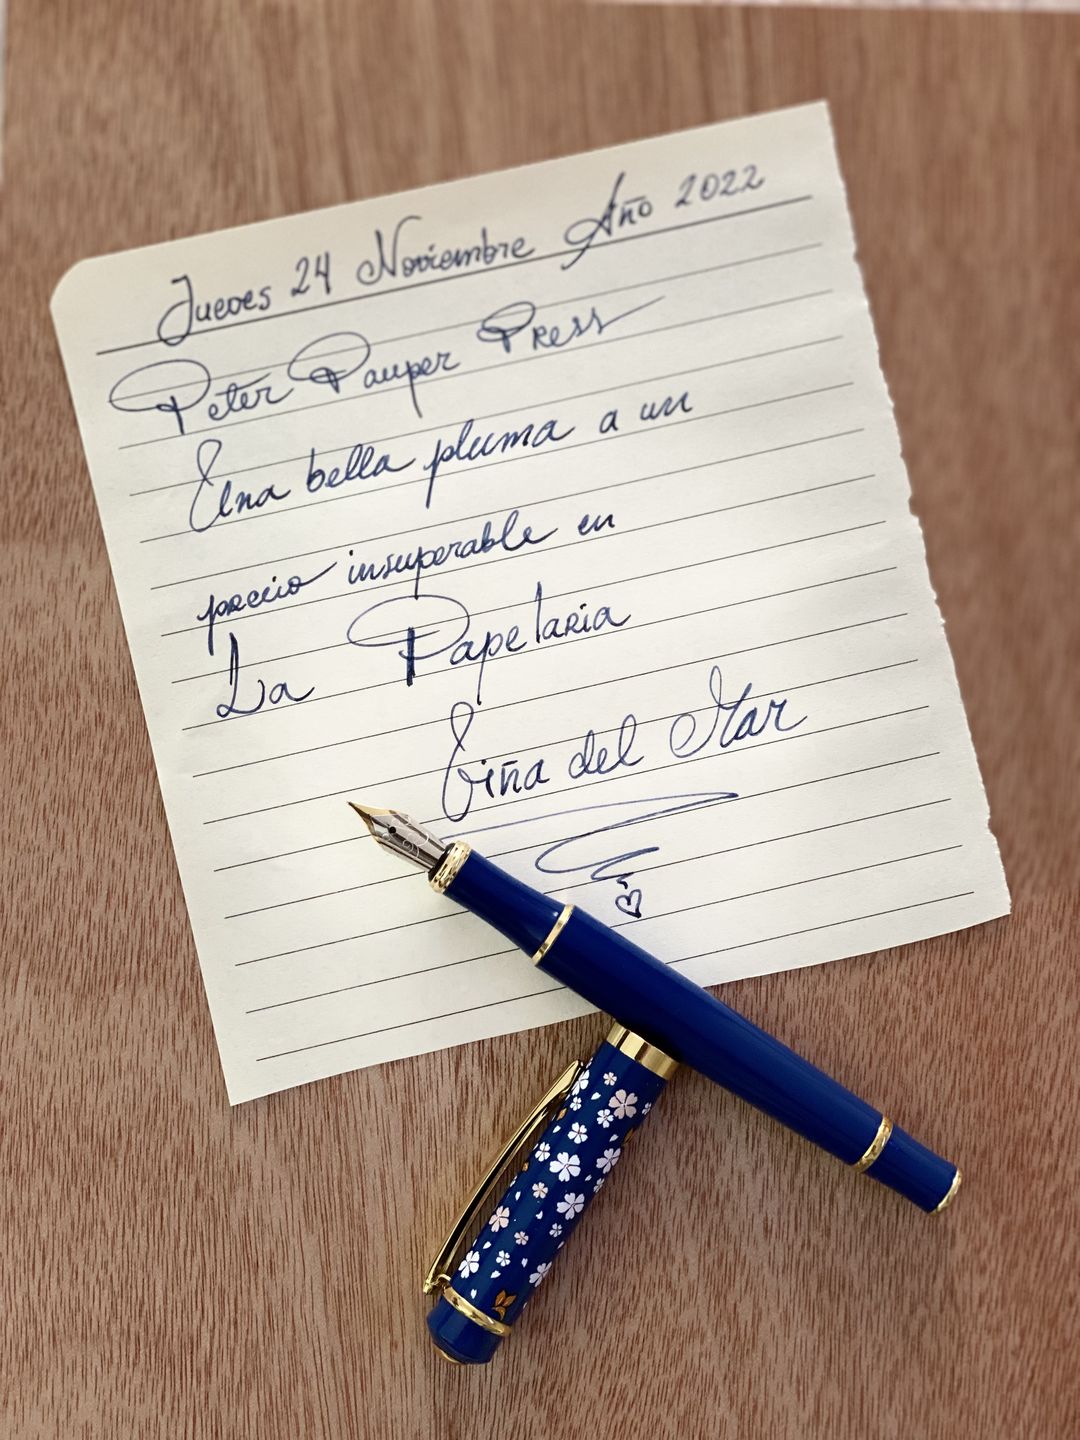 Jueves 24 Noviembre Año 2022
Peter Pauper Press
Una bella pluma a un
precio insuperable en
La Papelaria
Viña del Mar